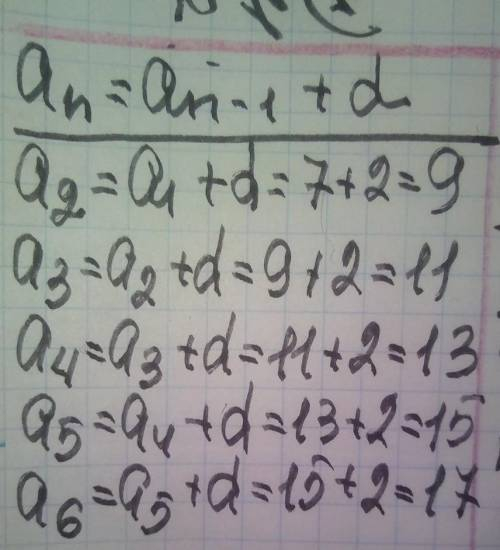 aₙ = aₙ₋₁ + d
a₂ = a₁ + d = 7 + 2 = 9
a₃ = a₂ + d = 9 + 2 = 11
a₄ = a₃ + d = 11 + 2 = 13
a₅ = a₄ + d = 13 + 2 = 15
a₆ = a₅ + d = 15 + 2 = 17